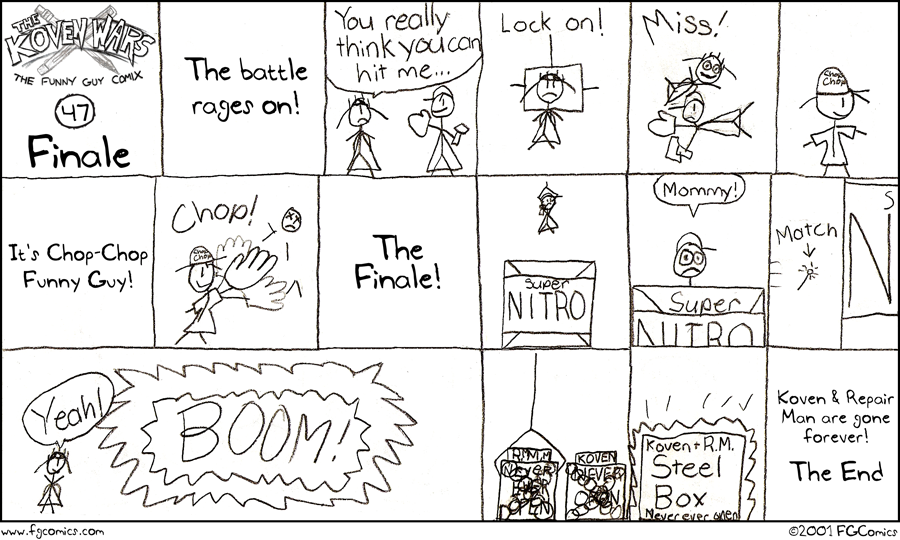 THE
KOVEN WARS
THE FUNNY GUY COMIX
47
Finale
The battle
rages on!
You really
think you can
hit me...
Lock on!
Miss!
Chop
Chop
It's Chop-Chop
Funny Guy!
Chop!
Chop
Chop
The
Finale!
Super
NITRO
Mommy!
Super
NITRO
Match
S
N
Yeah!
BOOM!
R.M.M
Never
KOVEN
NEVER
Koven + R.M.
Steel
Box
Never ever open
Koven & Repair
Man are gone
forever!
The End
www.fgcomics.com
©2001 FGComics